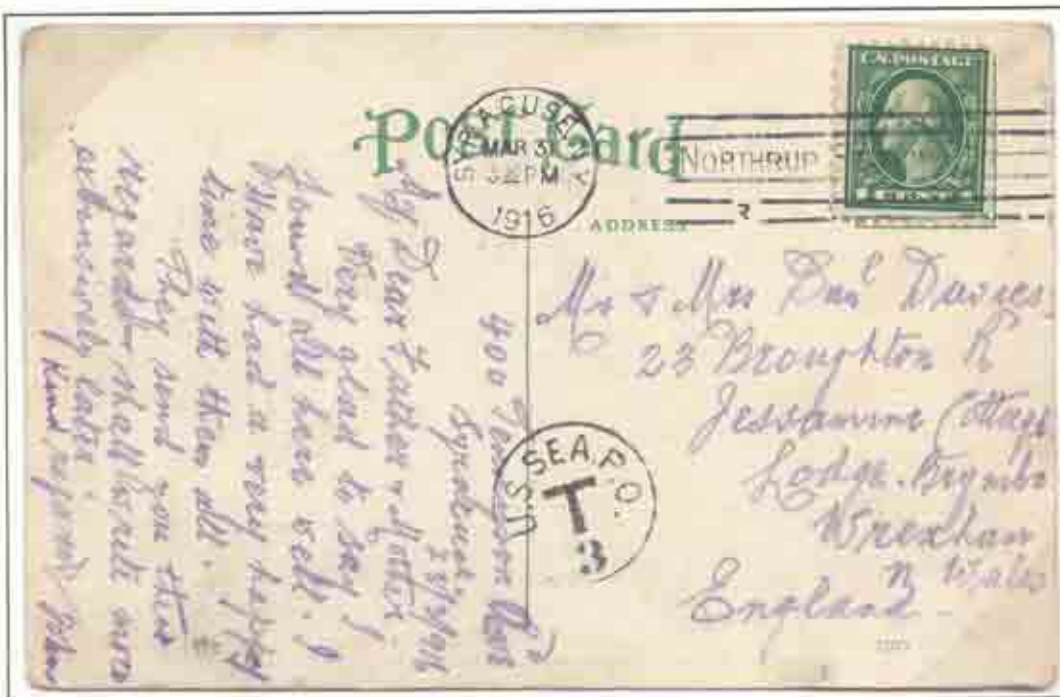 Post Card
SYRACUSE, N.Y.
MAR 31
PM
1916
NORTHRUP
U.S. POSTAGE
ADDRESS
Mr & Mrs Danl Davies
23 Broughton R
Jessamine Cottage
Lodge. Brymbo
Wrexham
N Wales
England
U.S. SEA. P. O.
T
3
400 Ave
Syracuse
My Dear Father & Mother.
Very glad to say I
found all here well. I
have had a very happy
time with them all.
They send you their
regards. shall write more
extensively later
Kind regards John